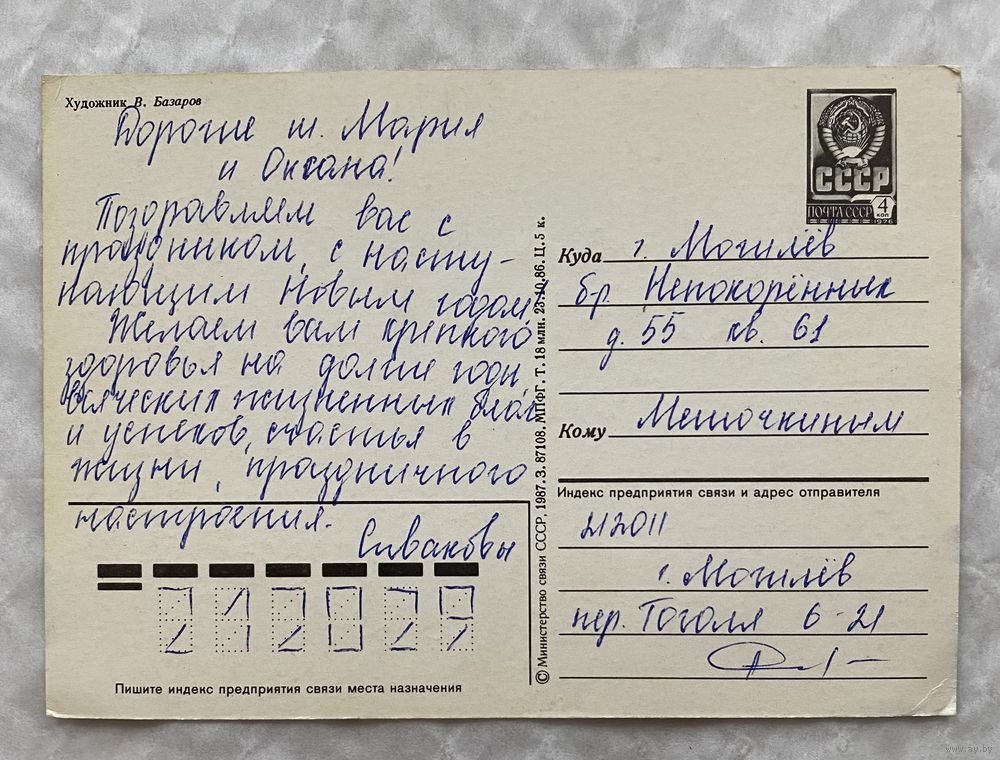 Художник В. Базаров
Дорогие т. Мария
и Оксана!
Поздравляем вас с
праздником, с насту-
пающим Новым годом,
Желаем вам крепкого
здоровья на долгие годы,
всяческих жизненных благ
и успехов, счастья в
жизни, праздничного
настроения.
Сиваковы
Пишите индекс предприятия связи места назначения
© Министерство связи СССР, 1987. З. 87108. МПФГ. Т. 18 млн. 23.10.86. Ц. 5 к.
СССР
ПОЧТА СССР 4 КОП
1976
Куда г. Могилёв
бр. Непокорённых
д. 55 кв. 61
Кому Мешочкиным
Индекс предприятия связи и адрес отправителя
212011
г. Могилёв
пер. Гоголя 6-21
www.ay.by